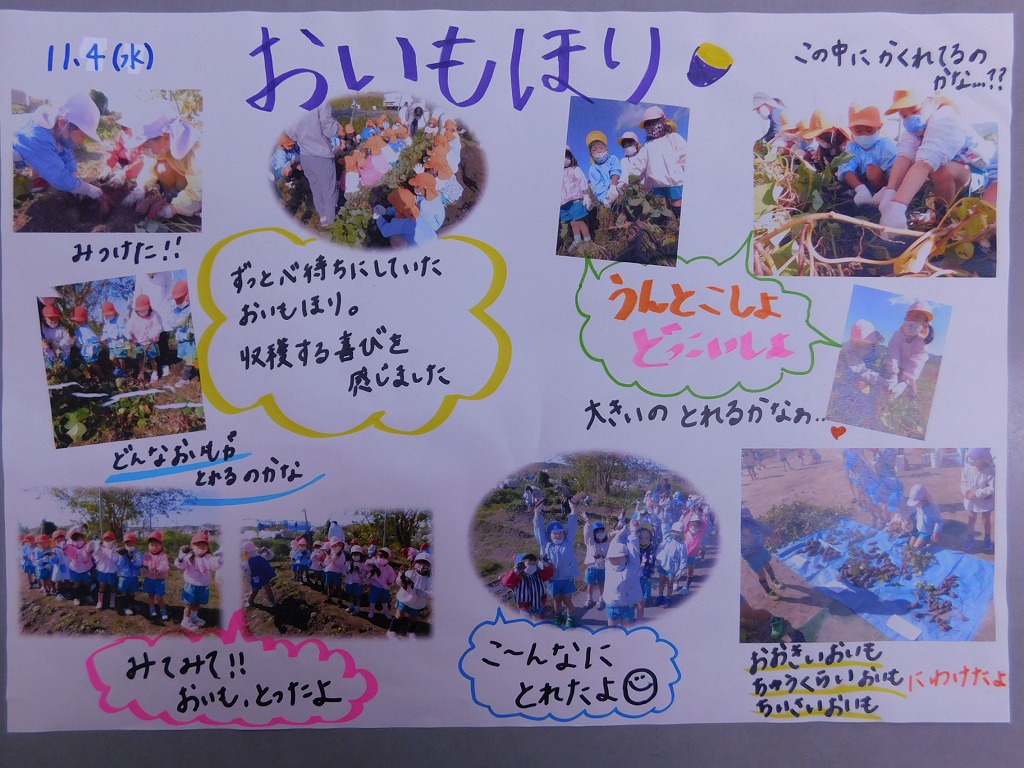 11.4(水)
おいもほり
この中に かくれてるの
かな…??
みつけた!!
ずっと心待ちにしていた
おいもほり。
収穫する喜びを
感じました
うんとこしょ
どっこいしょ
大きいの とれるかなぁ…
どんなおいもが
とれるのかな
みてみて!!
おいも、とったよ
こ〜んなに
とれたよ
おおきいおいも
ちゅうくらいおいも にわけたよ
ちいさいおいも